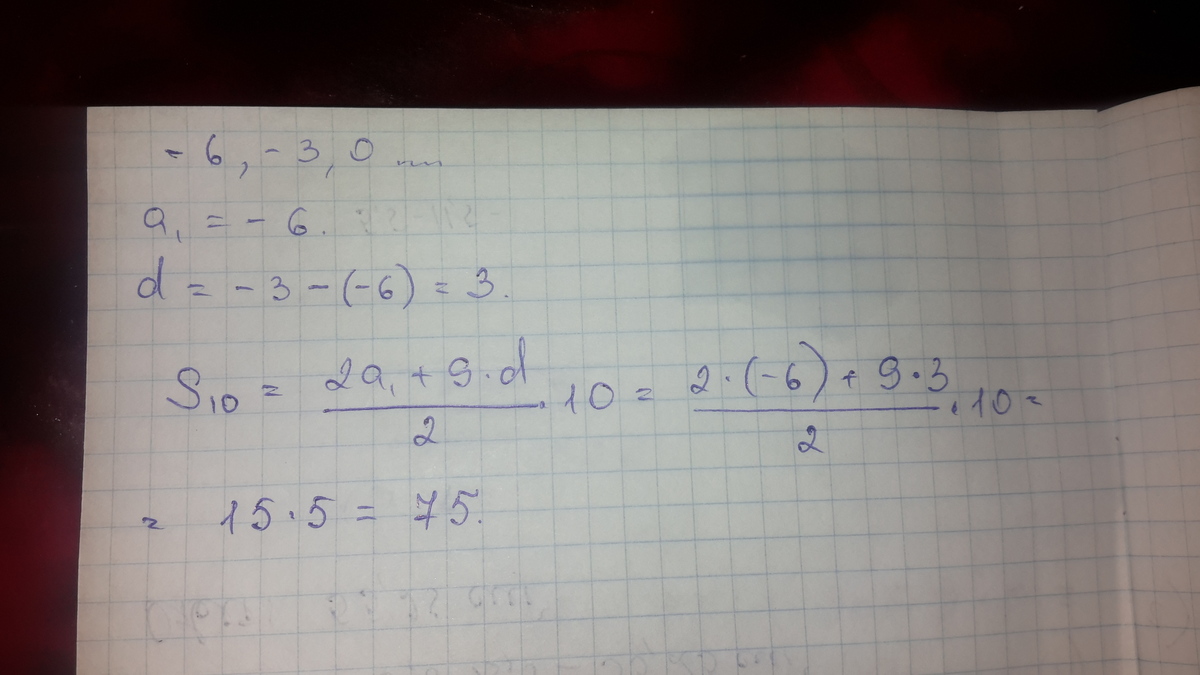 - 6, - 3, 0 ....
a₁ = - 6.
d = - 3 - (-6) = 3.
S₁₀ = (2a₁ + 9·d)/2 · 10 = (2·(-6) + 9·3)/2 · 10 =
= 15·5 = 75.